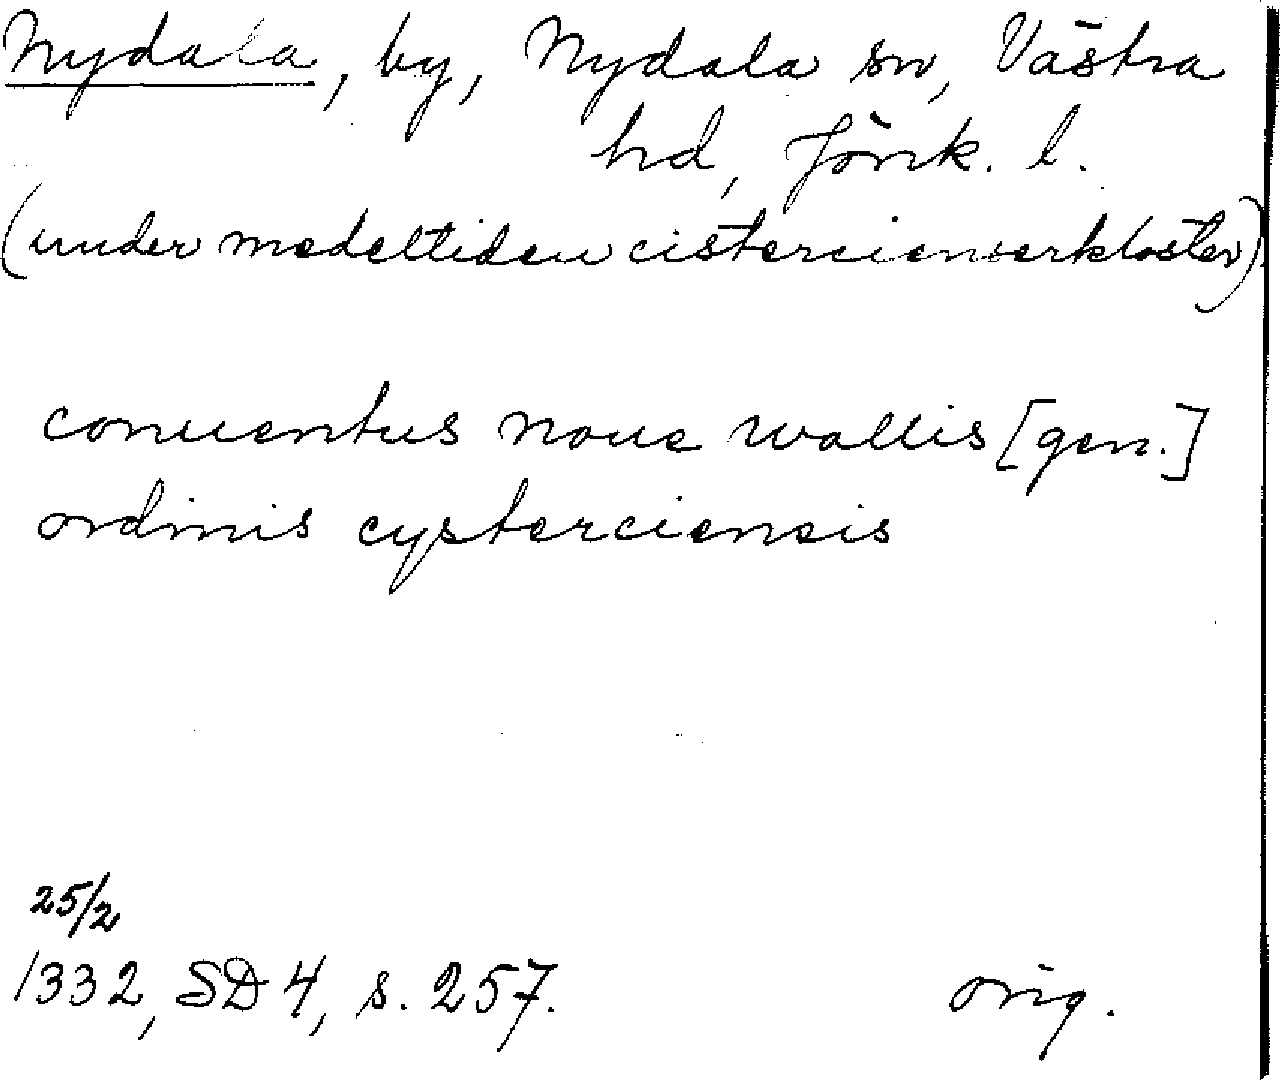 Nydala, by, Nydala sn, Västra
hd, Jönk. l.
(under medeltiden cistercienserkloster)
conuentus noue wallis [gen.]
ordinis cysterciensis
25/2
1332, SD 4, s. 257.
orig.